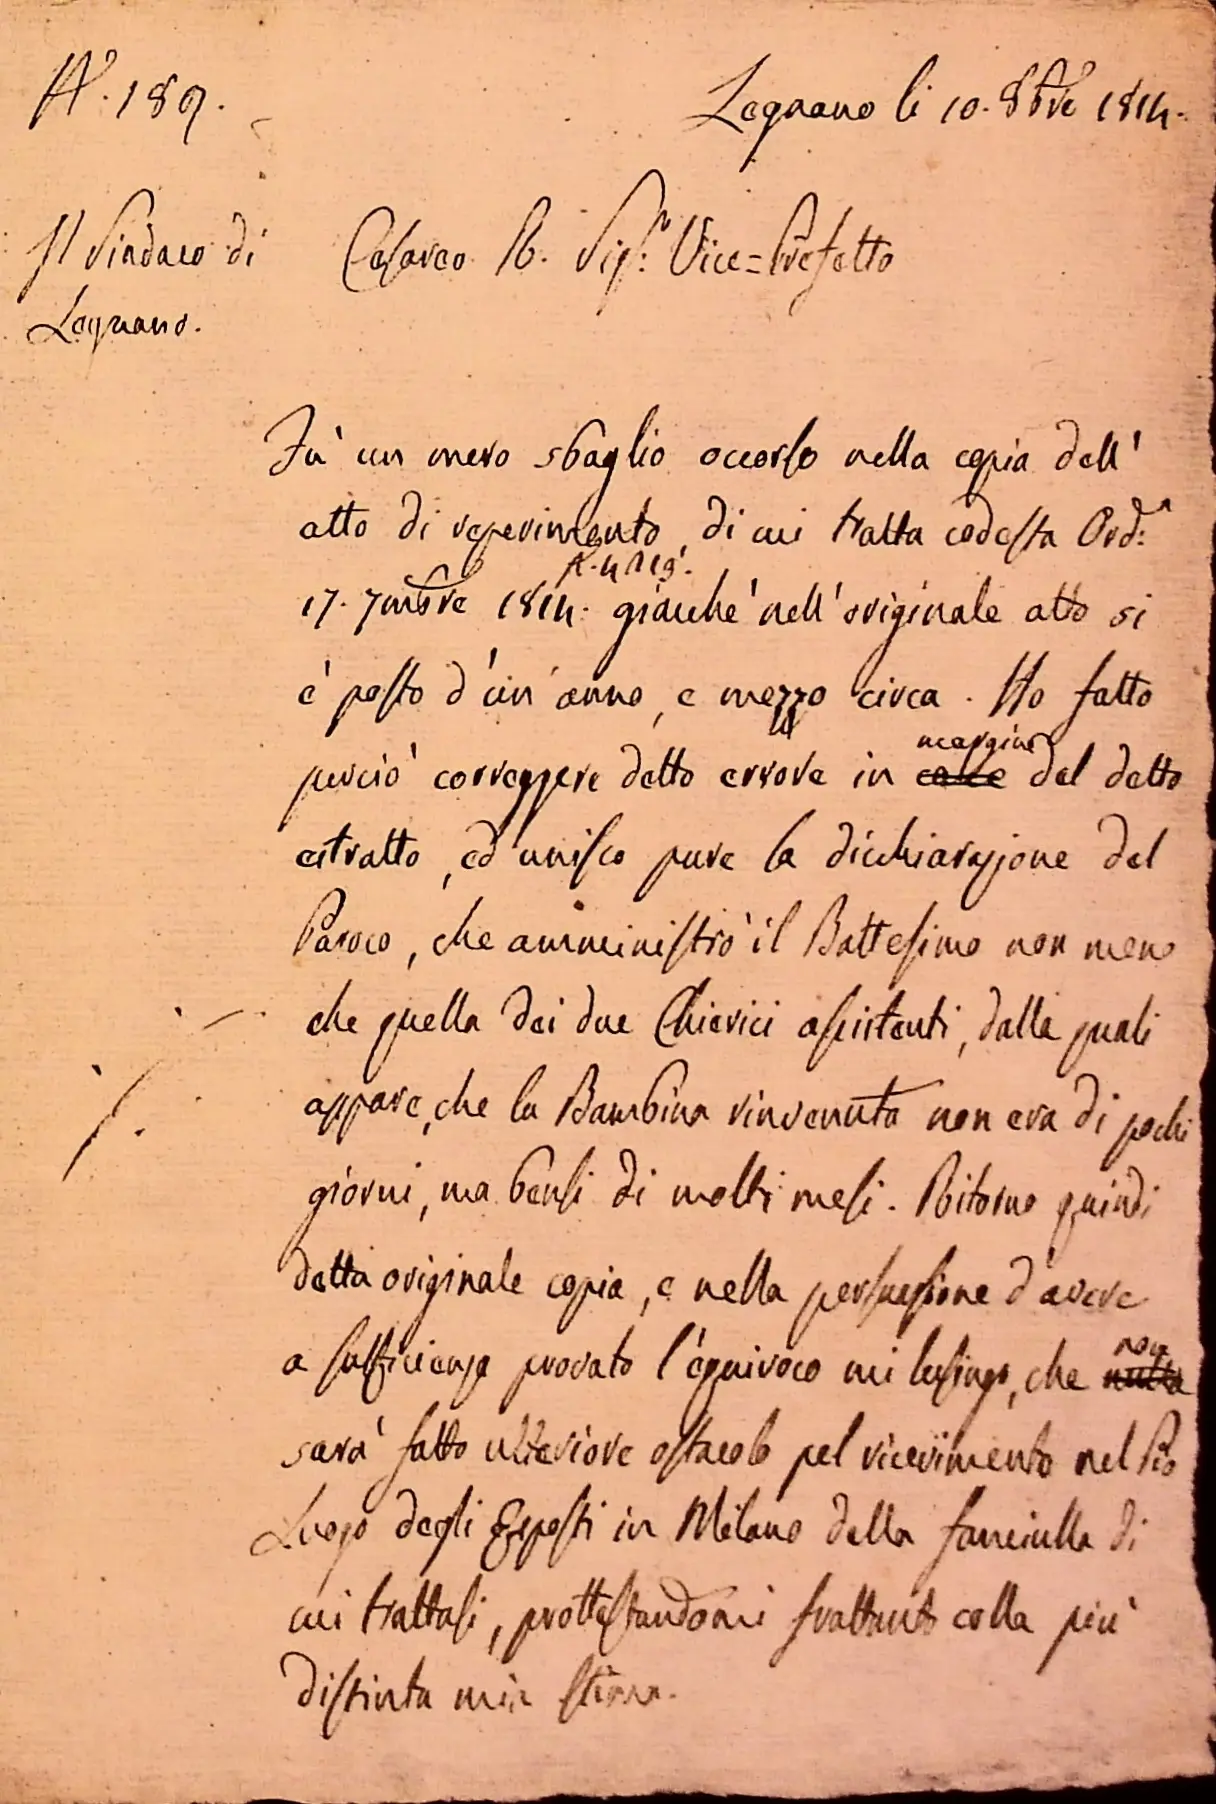 N.° 189.
Legnano li 10. 8bre 1814.
Il Sindaco di
Legnano.
Cesareo R. Sig.r Vice=Prefetto
Fù un mero sbaglio occorso nella copia dell'
atto di reperimento, di cui tratta codesta Ord.a
17. 7mbre 1814. giacchè nell'originale atto si
è posto d'un'anno, e mezzo circa. Ho fatto
perciò correggere detto errore in margine del detto
estratto, ed unisco pure la dicchiarazione del
Paroco, che amministrò il Battesimo non meno
che quella dei due Chierici assistenti, dalla quali
appare, che la Bambina rinvenuta non era di pochi
giorni, ma bensì di molti mesi. Ritorno quindi
detta originale copia, e nella persuasione d'avere
a sufficienza provato l'equivoco mi lusingo, che non
sarà fatto ulteriore ostacolo pel ricevimento nel Pio
Luogo degli Esposti in Milano della fanciulla di
cui trattasi, prottestandomi frattanto colla più
distinta mia stima.